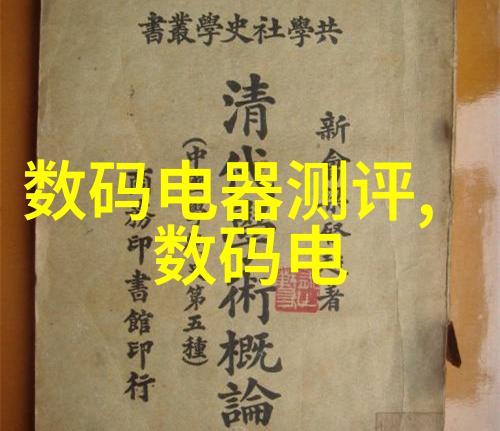 共學社史學叢書
新會梁啓超著
清代學術概論
(中國學術史第五種)
商務印書館印行
数码电器测评,
数码电